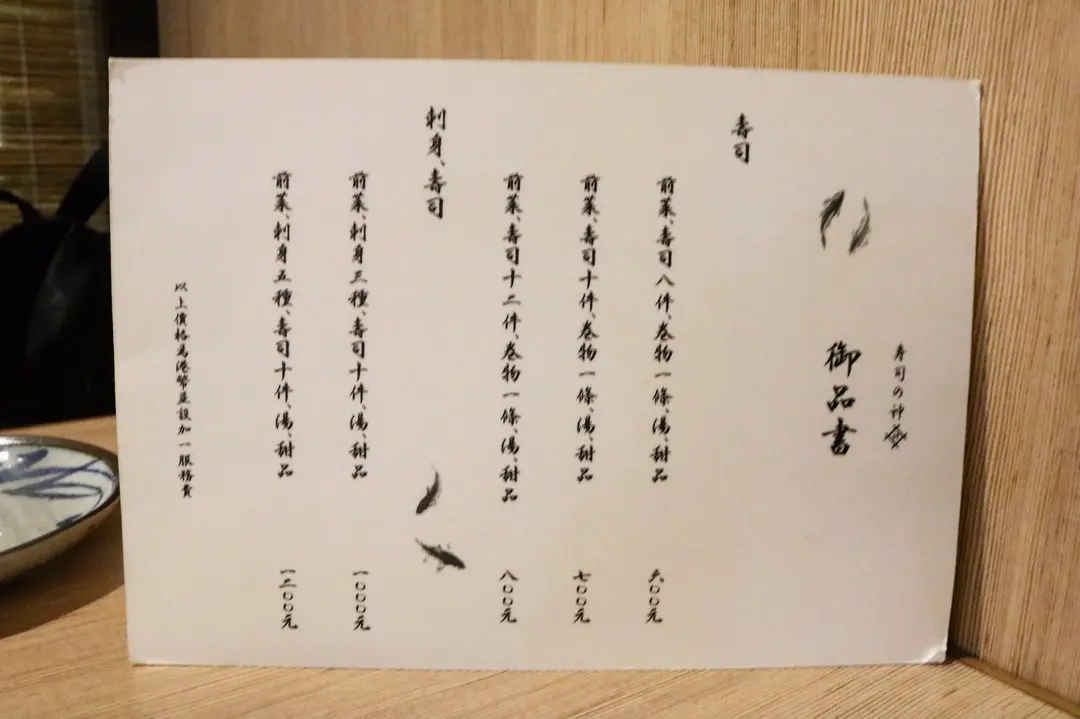 寿司の神
御品書
壽司
前菜、壽司八件、卷物一條、湯、甜品
六〇〇元
前菜、壽司十件、卷物一條、湯、甜品
七〇〇元
前菜、壽司十二件、卷物一條、湯、甜品
八〇〇元
刺身、壽司
前菜、刺身三種、壽司十件、湯、甜品
一〇〇〇元
前菜、刺身五種、壽司十件、湯、甜品
一二〇〇元
以上價格為港幣並設加一服務費